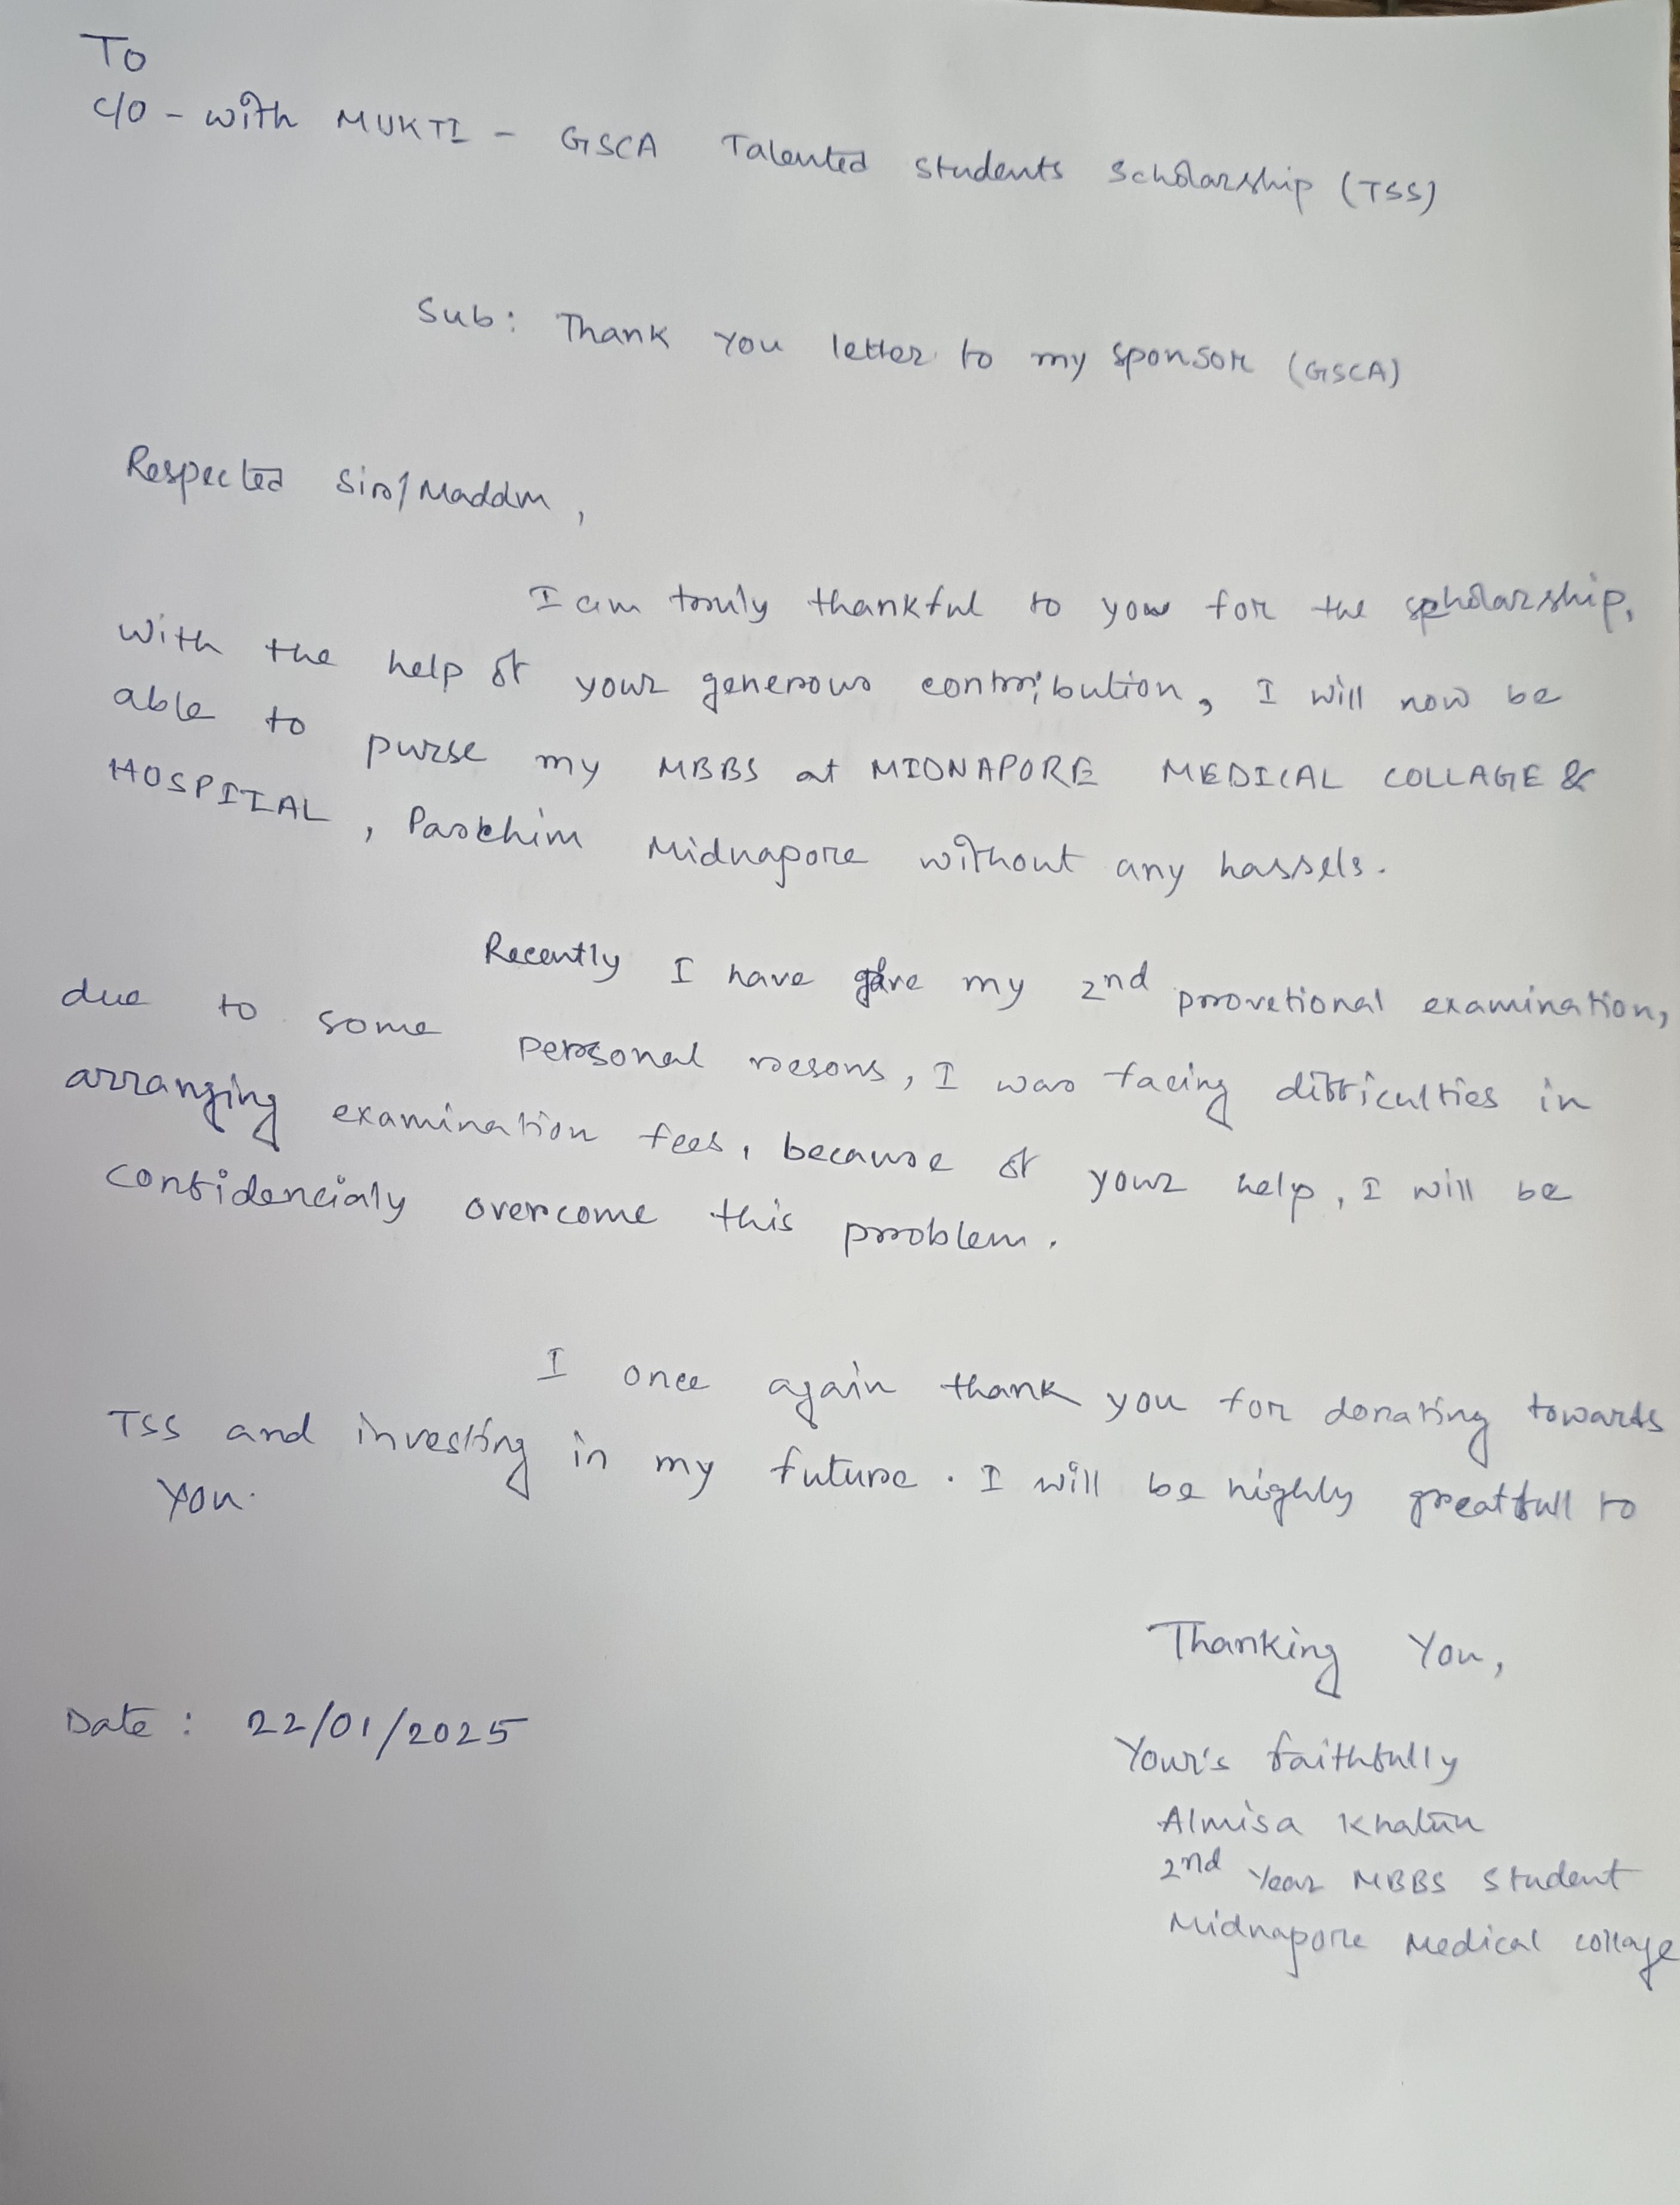 To
C/O - with MUKTI - GSCA Talented students scholarship (TSS)
Sub: Thank You letter to my sponsor (GSCA)
Respected Sir/Maddm,
I am truly thankful to you for the scholarship,
with the help of your generous contribution, I will now be
able to purse my MBBS at MIDNAPORE MEDICAL COLLAGE &
HOSPITAL, Paschim Midnapore without any hassels.
Recently I have give my 2nd provetional examination,
due to some personal resons, I was facing difficulties in
arranging examination fees, because of your help, I will be
confidencialy overcome this problem.
I once again thank you for donating towards
TSS and investing in my future. I will be highly greatfull to
you.
Thanking You,
Date : 22/01/2025
Your's faithfully
Almisa Khatun
2nd Year MBBS Student
Midnapore Medical collage